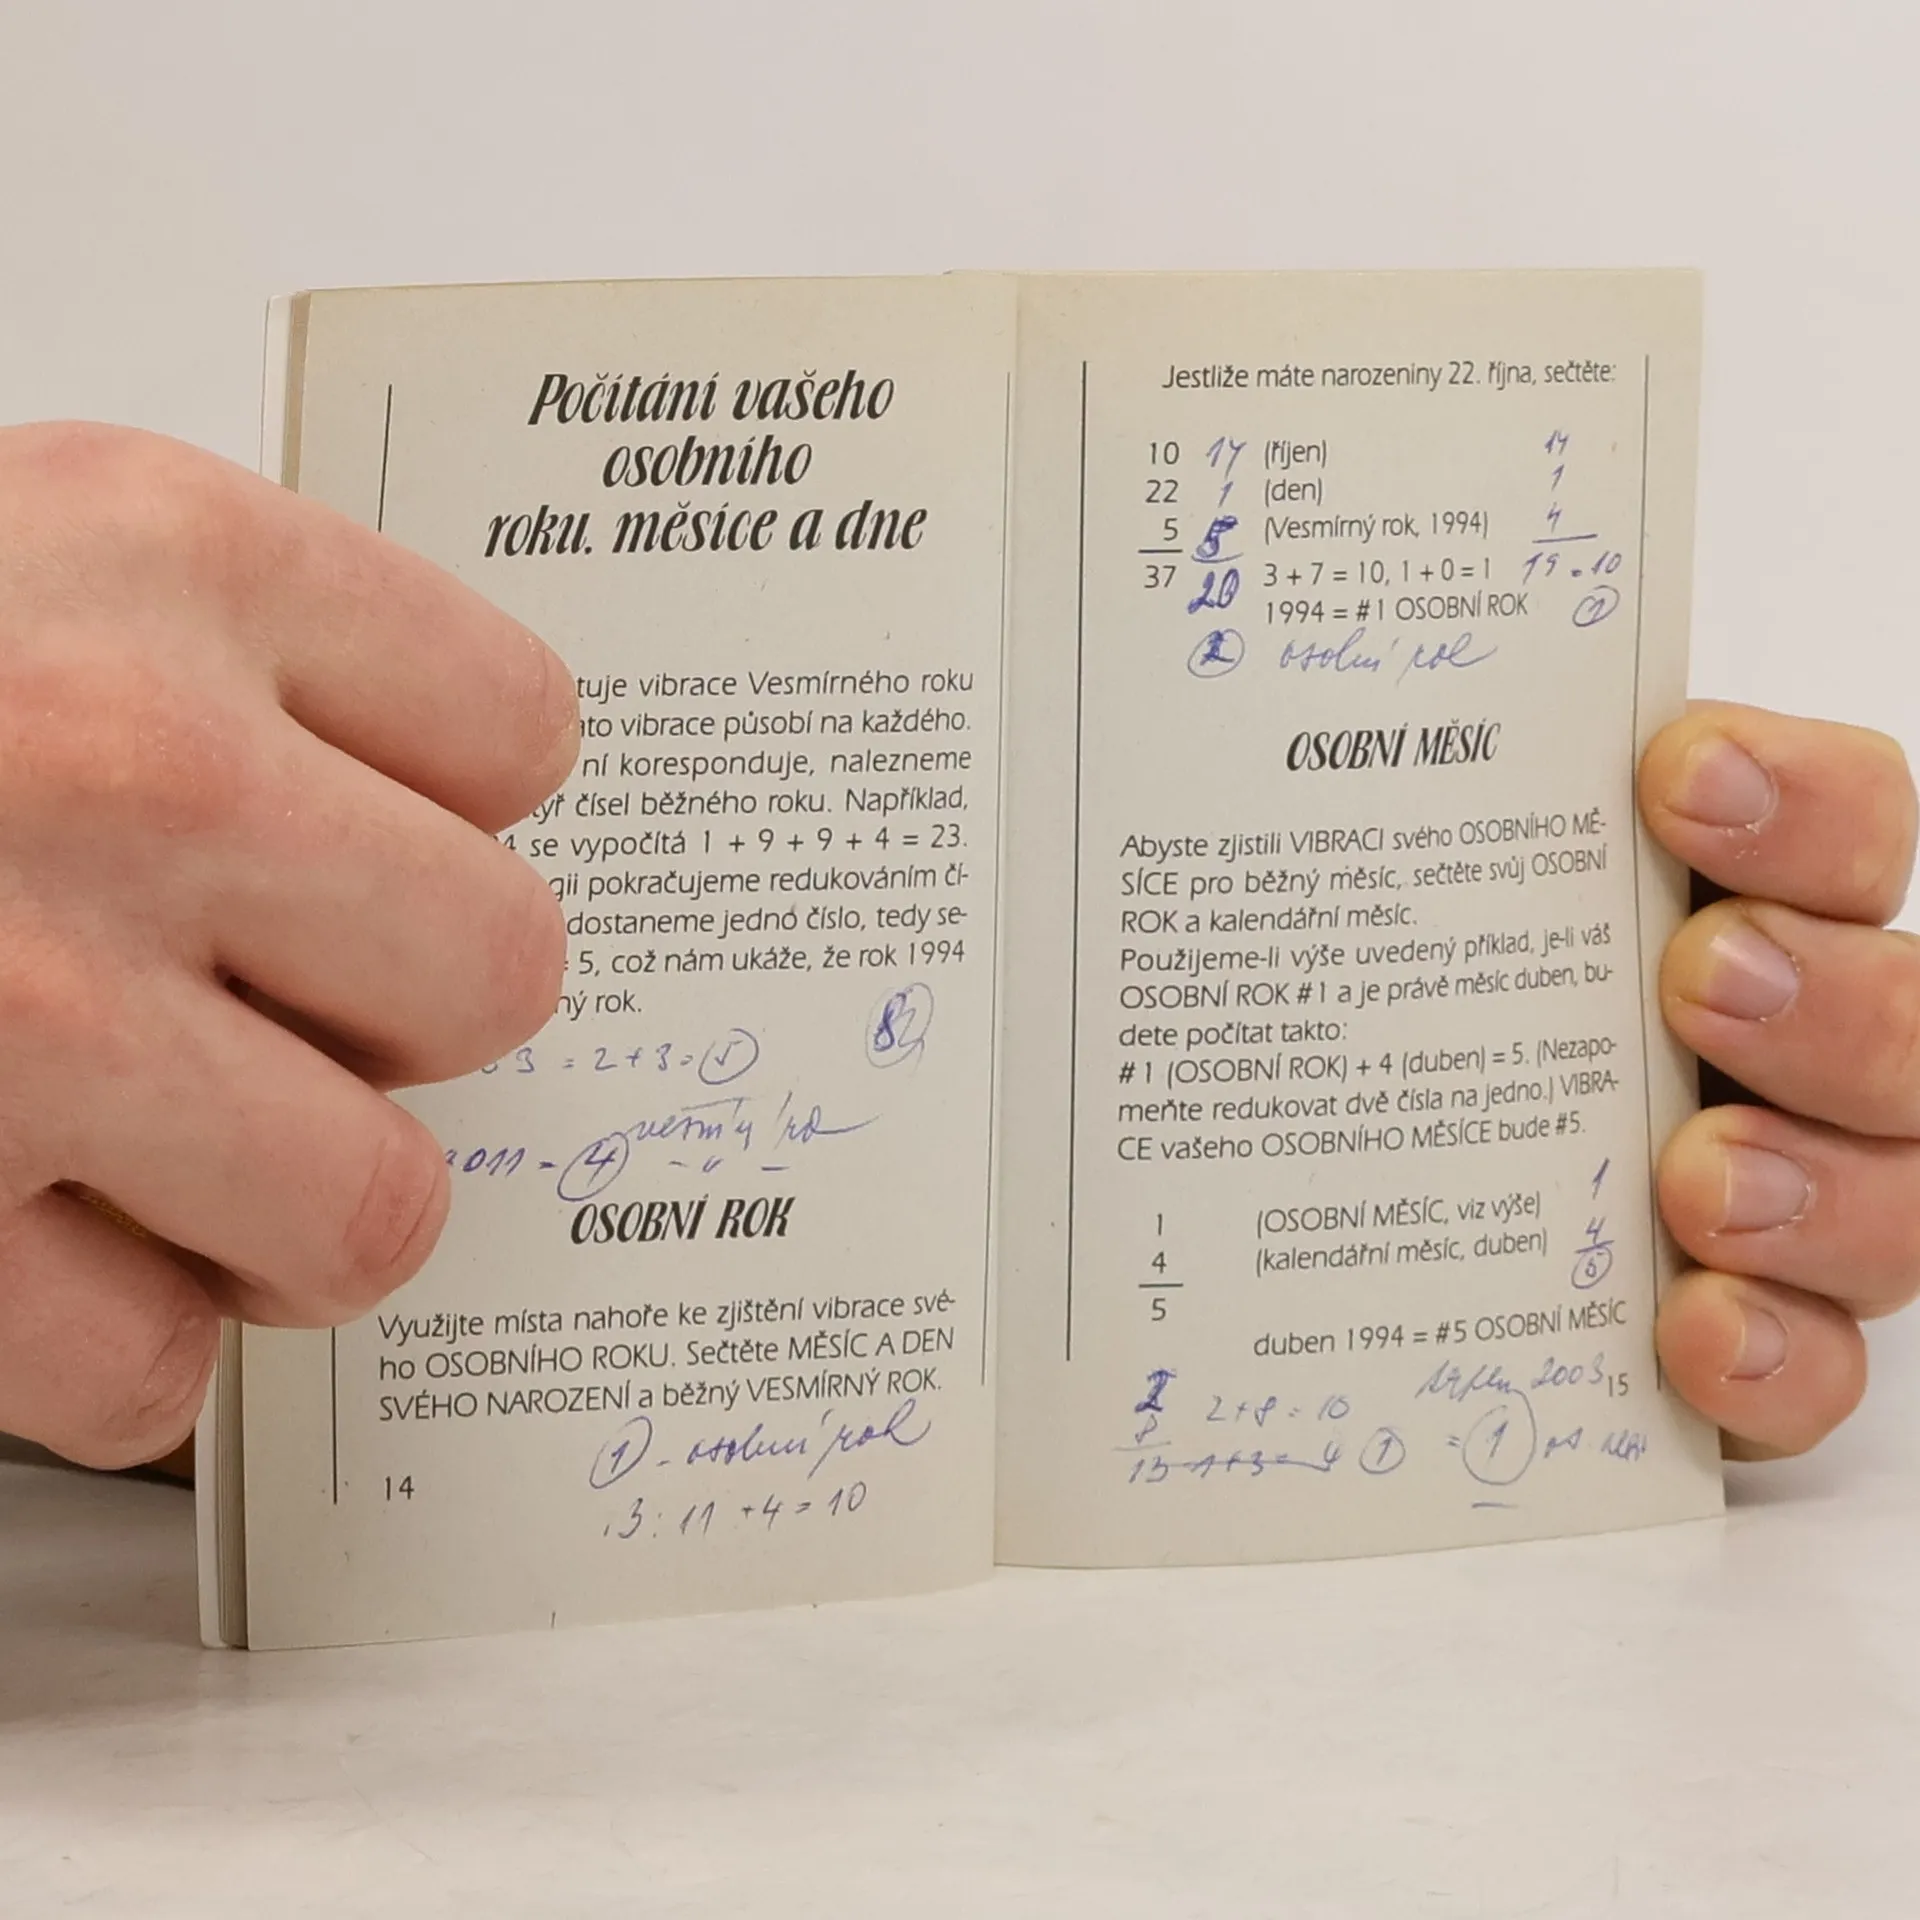 Počítání vašeho
osobního
roku. měsíce a dne
tuje vibrace Vesmírného roku
ato vibrace působí na každého.
ní koresponduje, nalezneme
čísel běžného roku. Například,
se vypočítá 1 + 9 + 9 + 4 = 23.
gii pokračujeme redukováním čí-
dostaneme jedno číslo, tedy se-
= 5, což nám ukáže, že rok 1994
ný rok.
8
3 = 2 + 3 = 5
2011 - 4 - " -
OSOBNÍ ROK
Využijte místa nahoře ke zjištění vibrace své-
ho OSOBNÍHO ROKU. Sečtěte MĚSÍC A DEN
SVÉHO NAROZENÍ a běžný VESMÍRNÝ ROK.
1 - osobní rok
3: 11 + 4 = 10
14
Jestliže máte narozeniny 22. října, sečtěte:
10 14 (říjen) 14
22 1 (den) 1
5 5 (Vesmírný rok, 1994) 4
37 20 3 + 7 = 10, 1 + 0 = 1 19 = 10
1994 = #1 OSOBNÍ ROK 1
2 osobní rok
OSOBNÍ MĚSÍC
Abyste zjistili VIBRACI svého OSOBNÍHO MĚ-
SÍCE pro běžný měsíc, sečtěte svůj OSOBNÍ
ROK a kalendářní měsíc.
Použijeme-li výše uvedený příklad, je-li váš
OSOBNÍ ROK #1 a je právě měsíc duben, bu-
dete počítat takto:
#1 (OSOBNÍ ROK) + 4 (duben) = 5. (Nezapo-
meňte redukovat dvě čísla na jedno.) VIBRA-
CE vašeho OSOBNÍHO MĚSÍCE bude #5.
1 (OSOBNÍ MĚSÍC, viz výše) 1
4 (kalendářní měsíc, duben) 4
5 5
duben 1994 = #5 OSOBNÍ MĚSÍC
2 2 + 8 = 10 srpen 2003
8
13 1+3= 4 1 = 1 os.
15